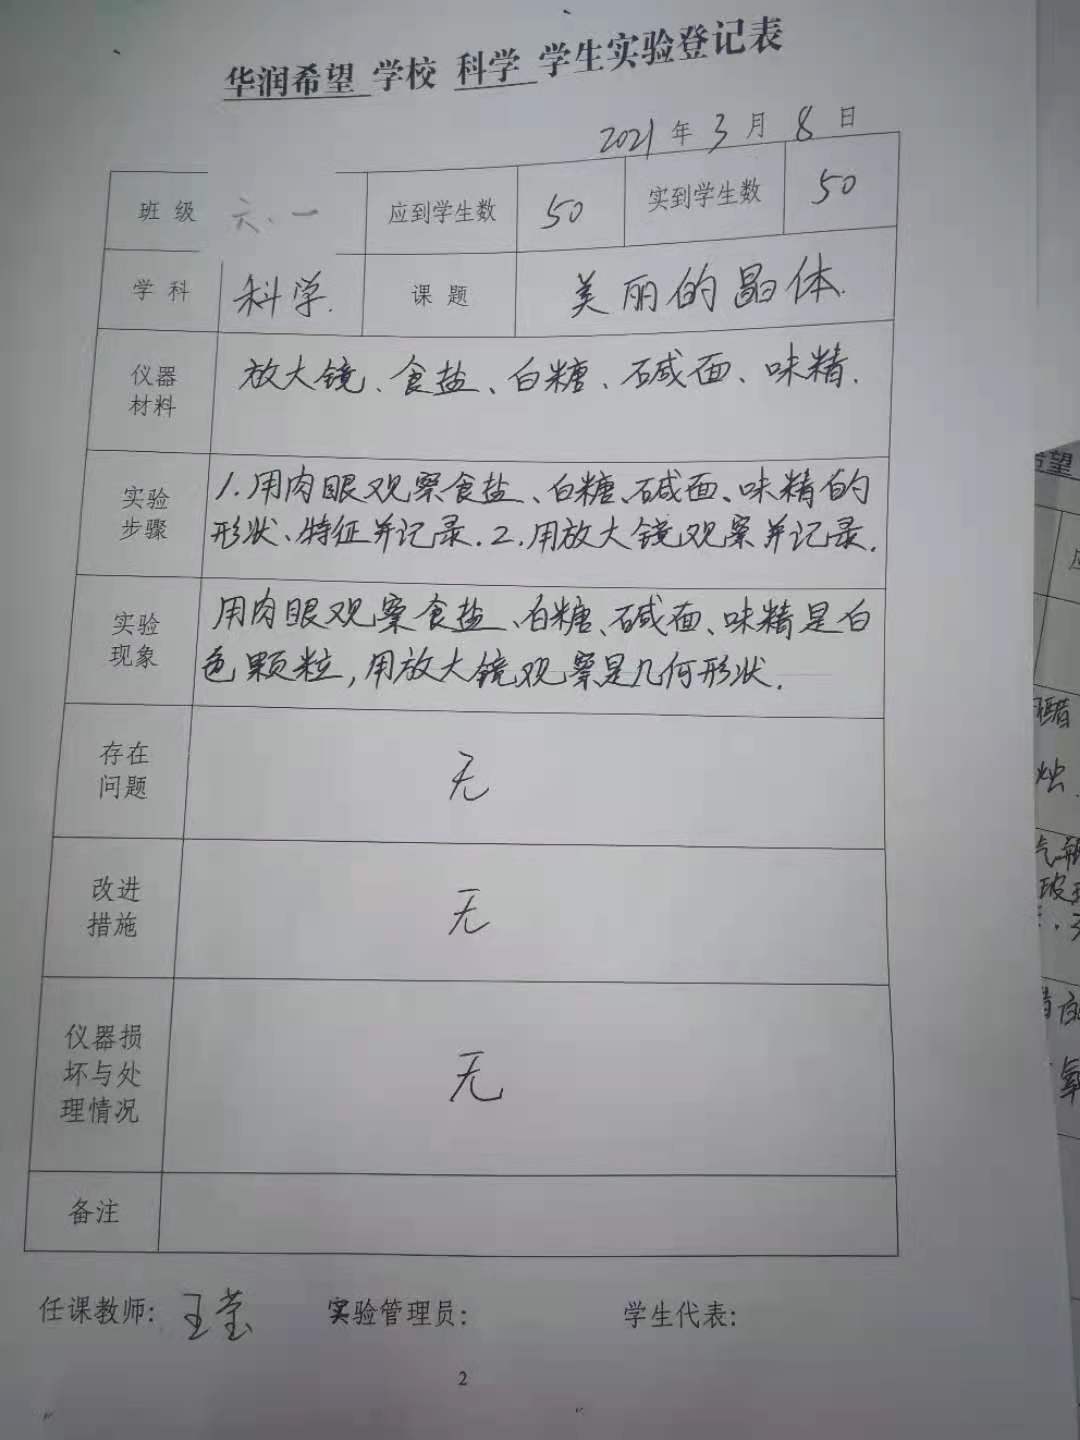 华润希望 学校 科学 学生实验登记表
2021 年 3 月 8 日
班 级 六、一 应到学生数 50 实到学生数 50
学 科 科学. 课 题 美丽的晶体.
仪器
材料
放大镜、食盐、白糖、碱面、味精.
实验
步骤
1.用肉眼观察食盐、白糖、碱面、味精的
形状、特征并记录.2.用放大镜观察并记录.
实验
现象
用肉眼观察食盐、白糖、碱面、味精是白
色颗粒,用放大镜观察是几何形状.
存在
问题
无
改进
措施
无
仪器损
坏与处
理情况
无
备注
任课教师: 王莹 实验管理员: 学生代表:
2
希望
醋
烛.
气
玻
氧